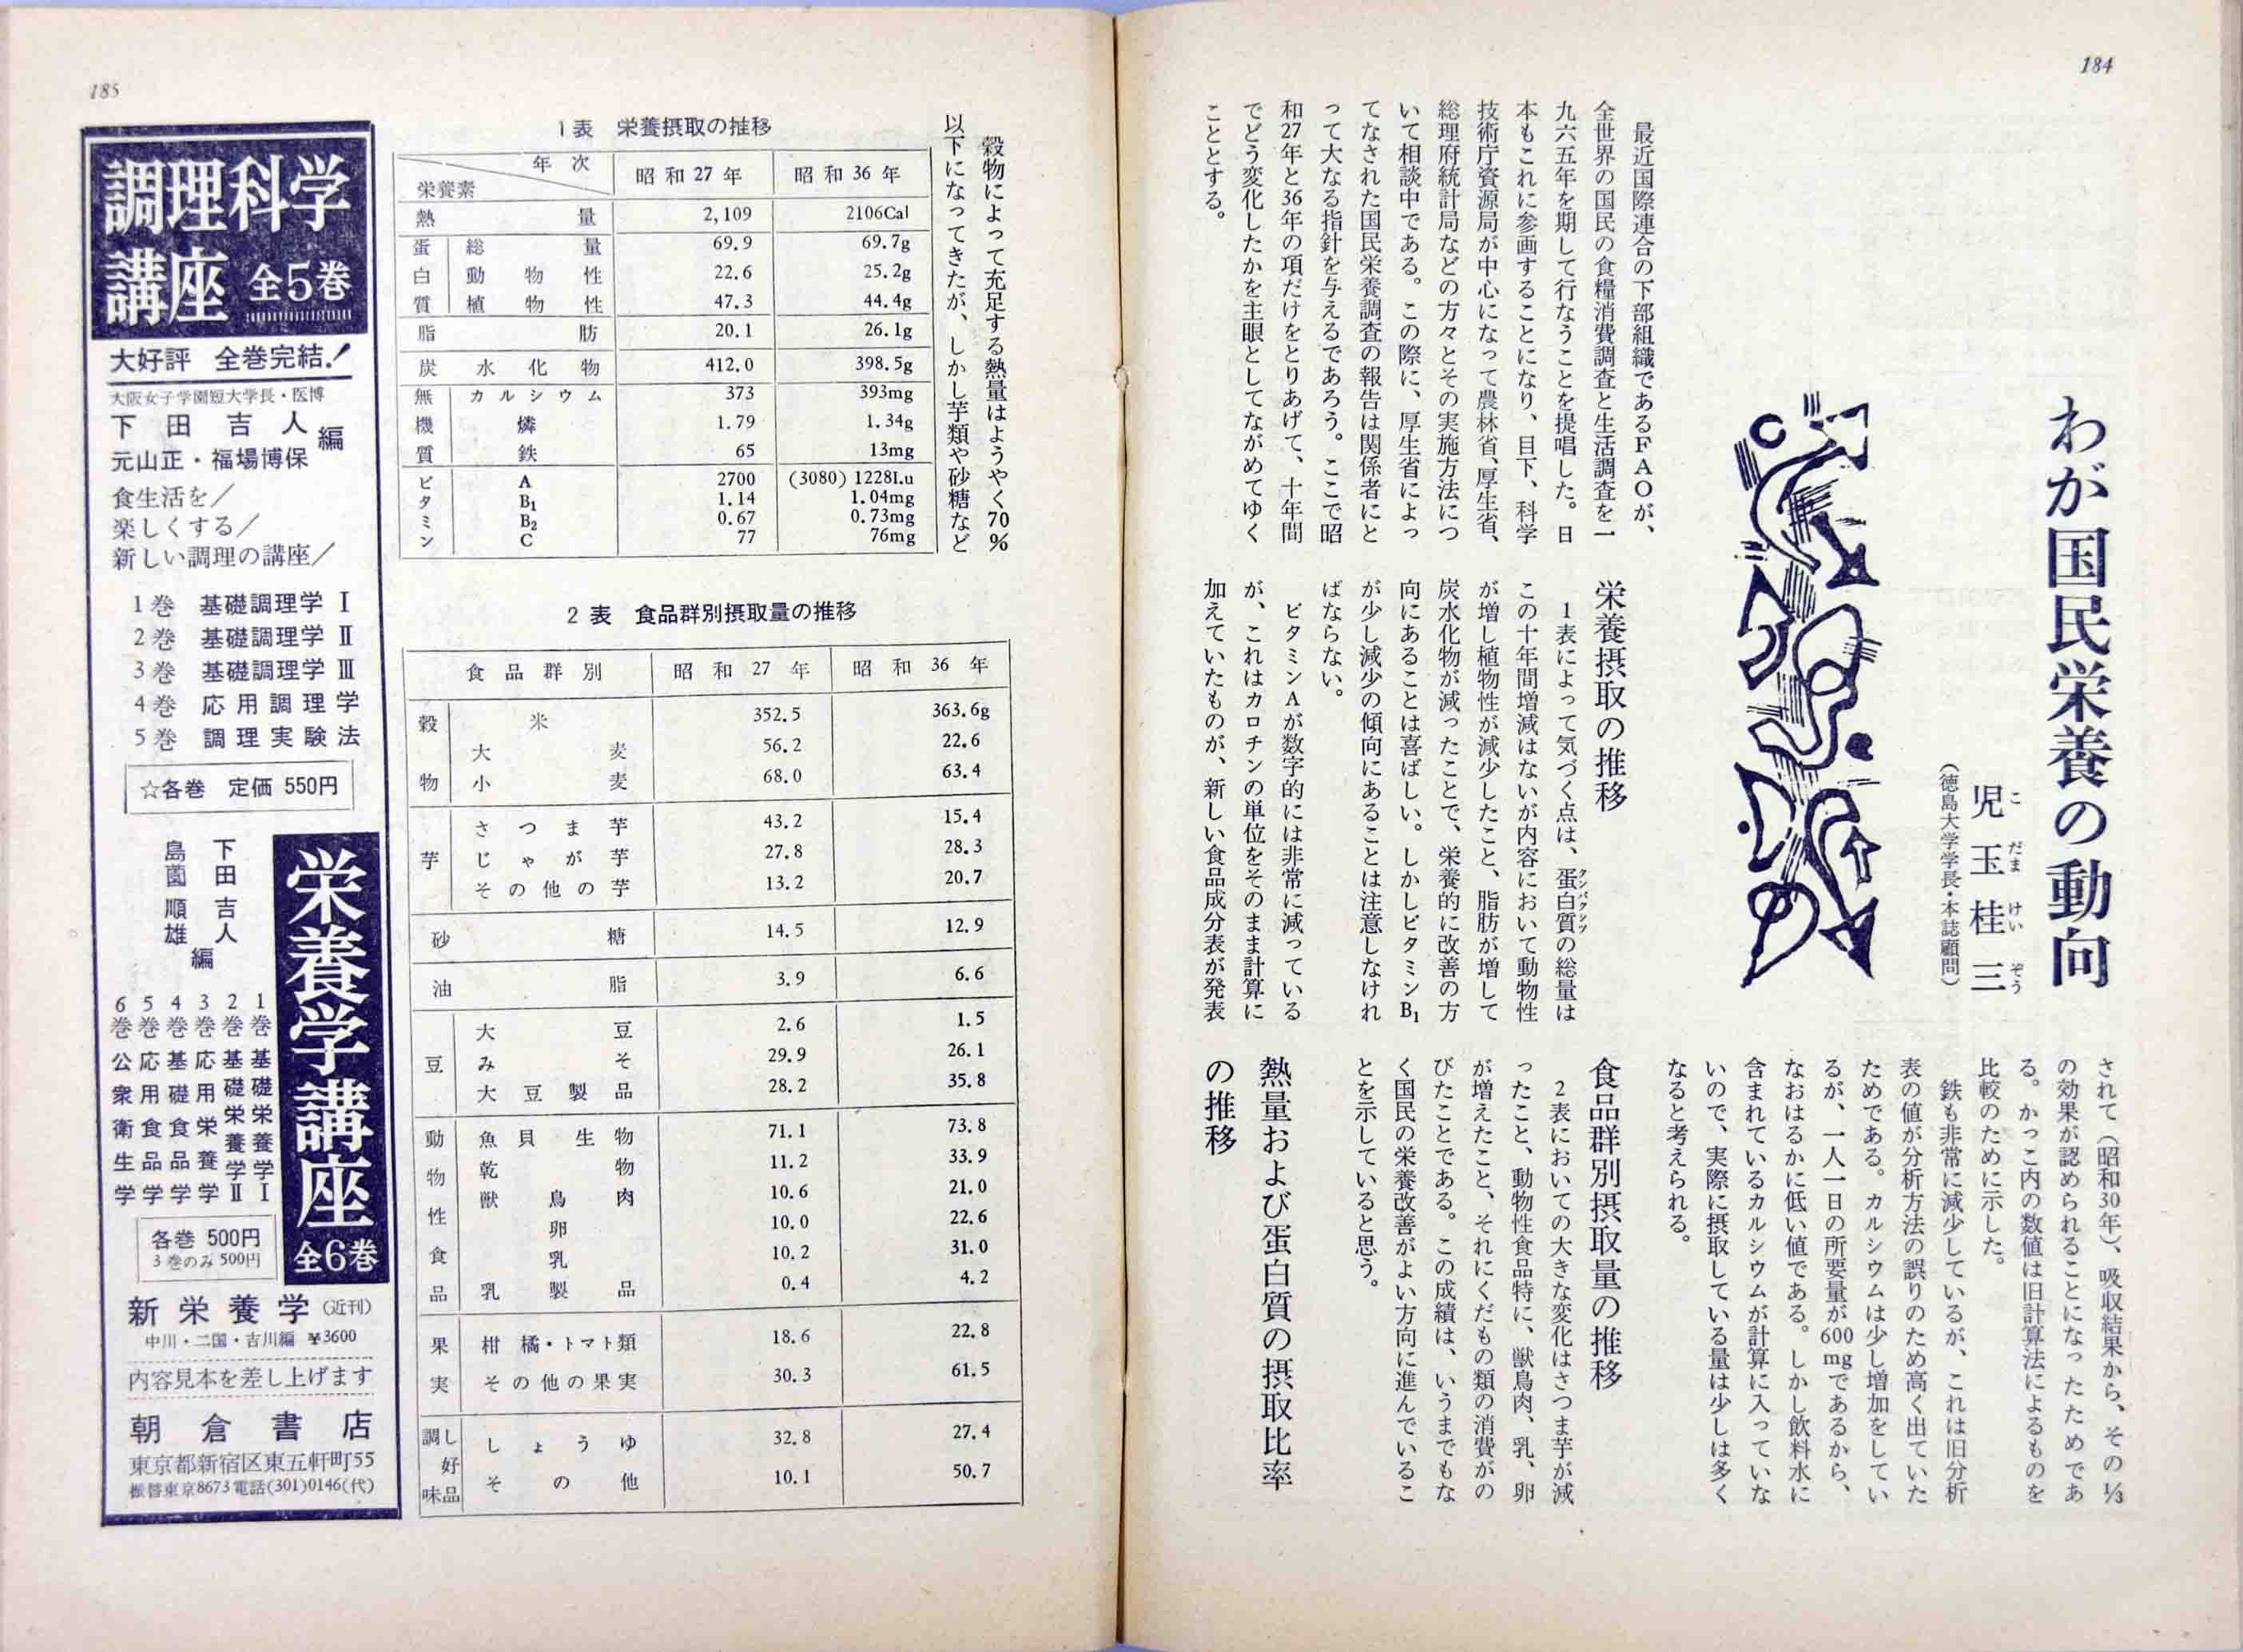 184
わが国民栄養の動向
児玉桂三
こだまけいぞう
(徳島大学学長・本誌顧問)
最近国際連合の下部組織であるFAOが、
全世界の国民の食糧消費調査と生活調査を一
九六五年を期して行なうことを提唱した。日
本もこれに参画することになり、目下、科学
技術庁資源局が中心になって農林省、厚生省、
総理府統計局などの方々とその実施方法につ
いて相談中である。この際に、厚生省によっ
てなされた国民栄養調査の報告は関係者にと
って大なる指針を与えるであろう。ここで昭
和27年と36年の項だけをとりあげて、十年間
でどう変化したかを主眼としてながめてゆく
こととする。
栄養摂取の推移
1表によって気づく点は、蛋白質の総量は
タンパクシツ
この十年間増減はないが内容において動物性
が増し植物性が減少したこと、脂肪が増して
炭水化物が減ったことで、栄養的に改善の方
向にあることは喜ばしい。しかしビタミンB₁
が少し減少の傾向にあることは注意しなけれ
ばならない。
ビタミンAが数字的には非常に減っている
が、これはカロチンの単位をそのまま計算に
加えていたものが、新しい食品成分表が発表
されて(昭和30年)、吸収結果から、その⅓
の効果が認められることになったためであ
る。かっこ内の数値は旧計算法によるものを
比較のために示した。
鉄も非常に減少しているが、これは旧分析
表の値が分析方法の誤りのため高く出ていた
ためである。カルシウムは少し増加をしてい
るが、一人一日の所要量が600mgであるから、
なおはるかに低い値である。しかし飲料水に
含まれているカルシウムが計算に入っていな
いので、実際に摂取している量は少しは多く
なると考えられる。
食品群別摂取量の推移
2表においての大きな変化はさつま芋が減
ったこと、動物性食品特に、獣鳥肉、乳、卵
が増えたこと、それにくだもの類の消費がの
びたことである。この成績は、いうまでもな
く国民の栄養改善がよい方向に進んでいるこ
とを示していると思う。
熱量および蛋白質の摂取比率
の推移
185
穀物によって充足する熱量はようやく70%
以下になってきたが、しかし芋類や砂糖など
1表 栄養摂取の推移
年次 昭和27年 昭和36年
栄養素
熱量 2,109 2106Cal
蛋白質 総量 69.9 69.7g
動物性 22.6 25.2g
植物性 47.3 44.4g
脂肪 20.1 26.1g
炭水化物 412.0 398.5g
無機質 カルシウム 373 393mg
燐 1.79 1.34g
鉄 65 13mg
ビタミン A 2700 (3080) 1228I.u
B₁ 1.14 1.04mg
B₂ 0.67 0.73mg
C 77 76mg
2表 食品群別摂取量の推移
食品群別 昭和27年 昭和36年
穀物 米 352.5 363.6g
大麦 56.2 22.6
小麦 68.0 63.4
芋 さつま芋 43.2 15.4
じゃが芋 27.8 28.3
その他の芋 13.2 20.7
砂糖 14.5 12.9
油脂 3.9 6.6
豆 大豆 2.6 1.5
みそ 29.9 26.1
大豆製品 28.2 35.8
動物性食品 魚貝 生物 71.1 73.8
乾物 11.2 33.9
獣鳥肉 10.6 21.0
卵 10.0 22.6
乳 10.2 31.0
乳製品 0.4 4.2
果実 柑橘・トマト類 18.6 22.8
その他の果実 30.3 61.5
調味し好品 しょうゆ 32.8 27.4
その他 10.1 50.7
調理科学
講座 全5巻
大好評 全巻完結!
大阪女子学園短大学長・医博
下田吉人編
元山正・福場博保
食生活を/
楽しくする/
新しい調理の講座/
1巻 基礎調理学 Ⅰ
2巻 基礎調理学 Ⅱ
3巻 基礎調理学 Ⅲ
4巻 応用調理学
5巻 調理実験法
☆各巻 定価 550円
栄養学講座 全6巻
下田吉人
島薗順雄 編
1巻 基礎栄養学Ⅰ
2巻 基礎栄養学Ⅱ
3巻 応用栄養学
4巻 基礎食品学
5巻 応用食品学
6巻 公衆衛生学
各巻 500円
3巻のみ 500円
新栄養学(近刊)
中川・二国・吉川編 ¥3600
内容見本を差し上げます
朝倉書店
東京都新宿区東五軒町55
振替東京8673電話(301)0146(代)